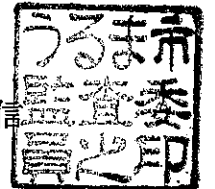 うるま市
監査委
員之印